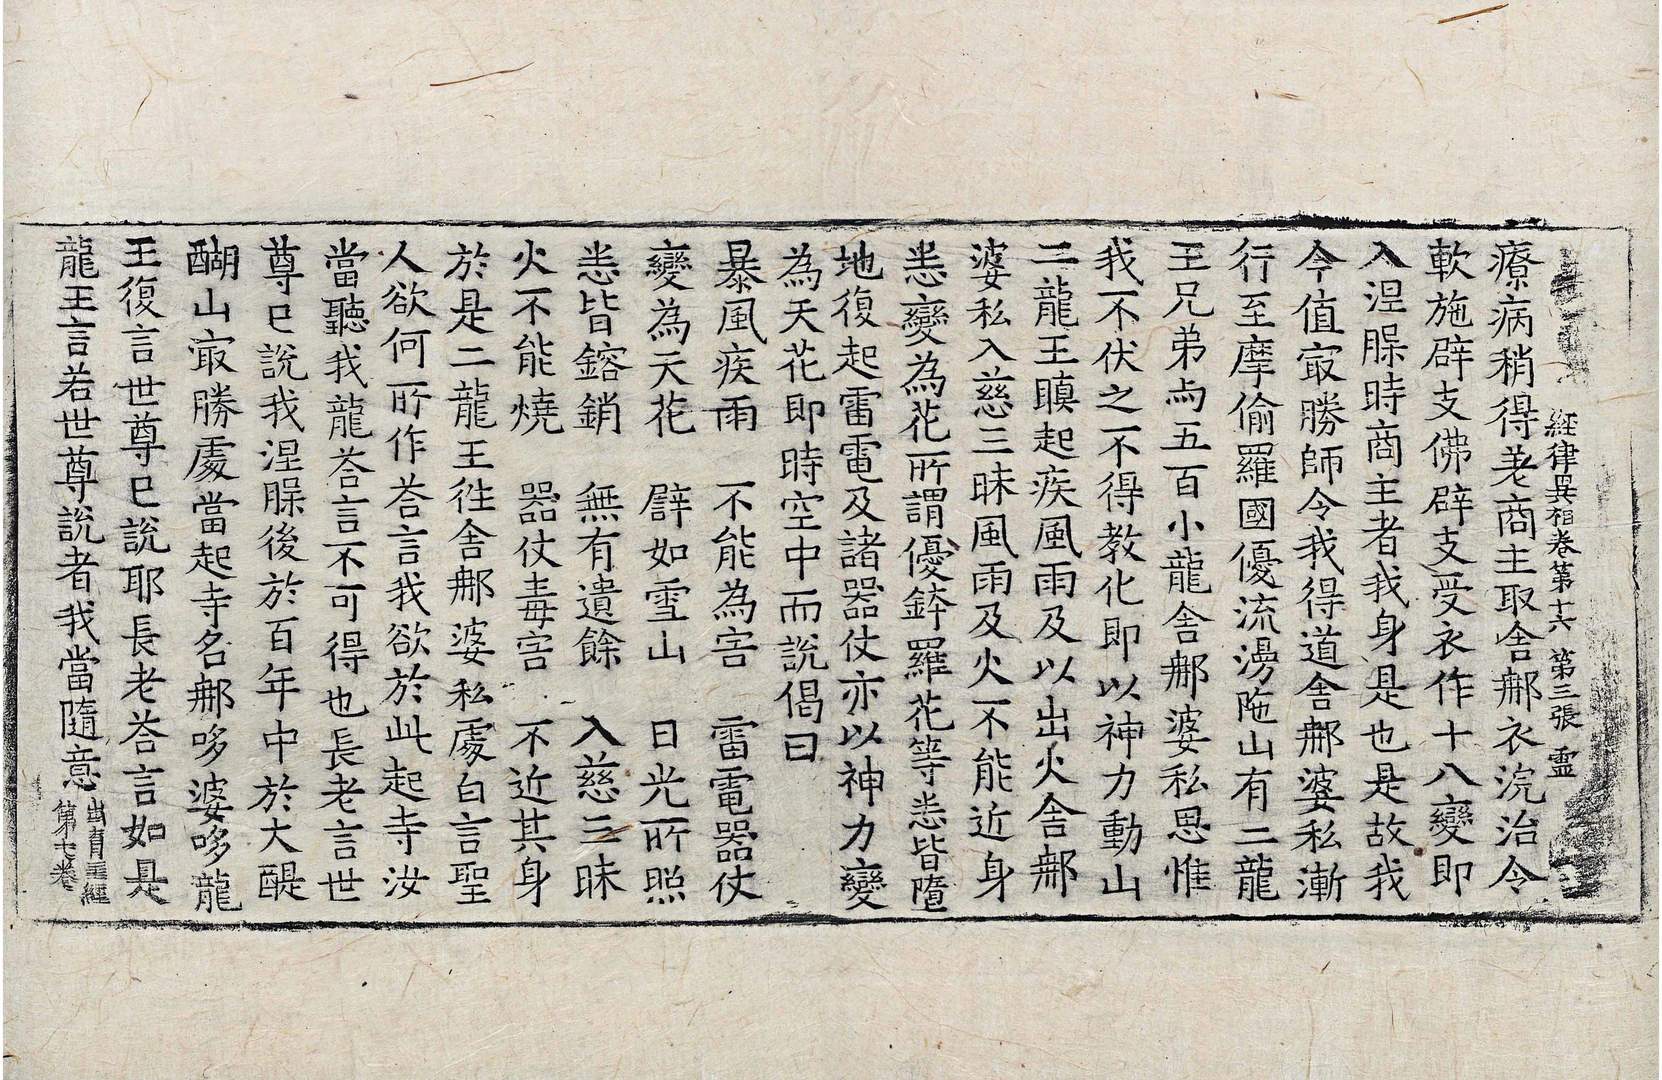 經律異相卷第十六 第三張 靈
療病稍得差商主取舍那衣浣治令
軟施辟支佛辟支受衣作十八變即
入涅槃時商主者我身是也是故我
今值㝡勝師令我得道舍那婆私漸
行至摩偷羅國優流漫陁山有二龍
王兄弟与五百小龍舍那婆私思惟
我不伏之不得教化即以神力動山
二龍王瞋起疾風雨及以出火舍那
婆私入慈三昧風雨及火不能近身
悉變為花所謂優鉢羅花等悉皆墮
地復起雷電及諸器仗亦以神力變
為天花即時空中而說偈曰
暴風疾雨 不能為害 雷電器仗
變為天花 譬如雪山 日光所照
悉皆鎔銷 無有遺餘 入慈三昧
火不能燒 器仗毒害 不近其身
於是二龍王徃舍那婆私處白言聖
人欲何所作荅言我欲於此起寺汝
當聽我龍荅言不可得也長老言世
尊已說我涅槃後於百年中於大醍
醐山㝡勝處當起寺名那哆婆哆龍
王復言世尊已說耶長老荅言如是
龍王言若世尊說者我當隨意 出育王經
第七卷